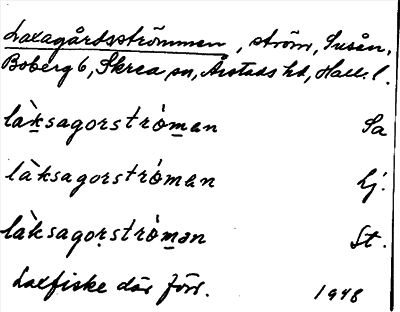 Laxagårdsströmmen, ström, Susån,
Boberg 6, Skrea sn, Årstads hd, Hall. l.
là̀ksagorstróman Sa
làksagorstróman Lj.
làksagorstróman St.
Laxfiske där förr.
1948